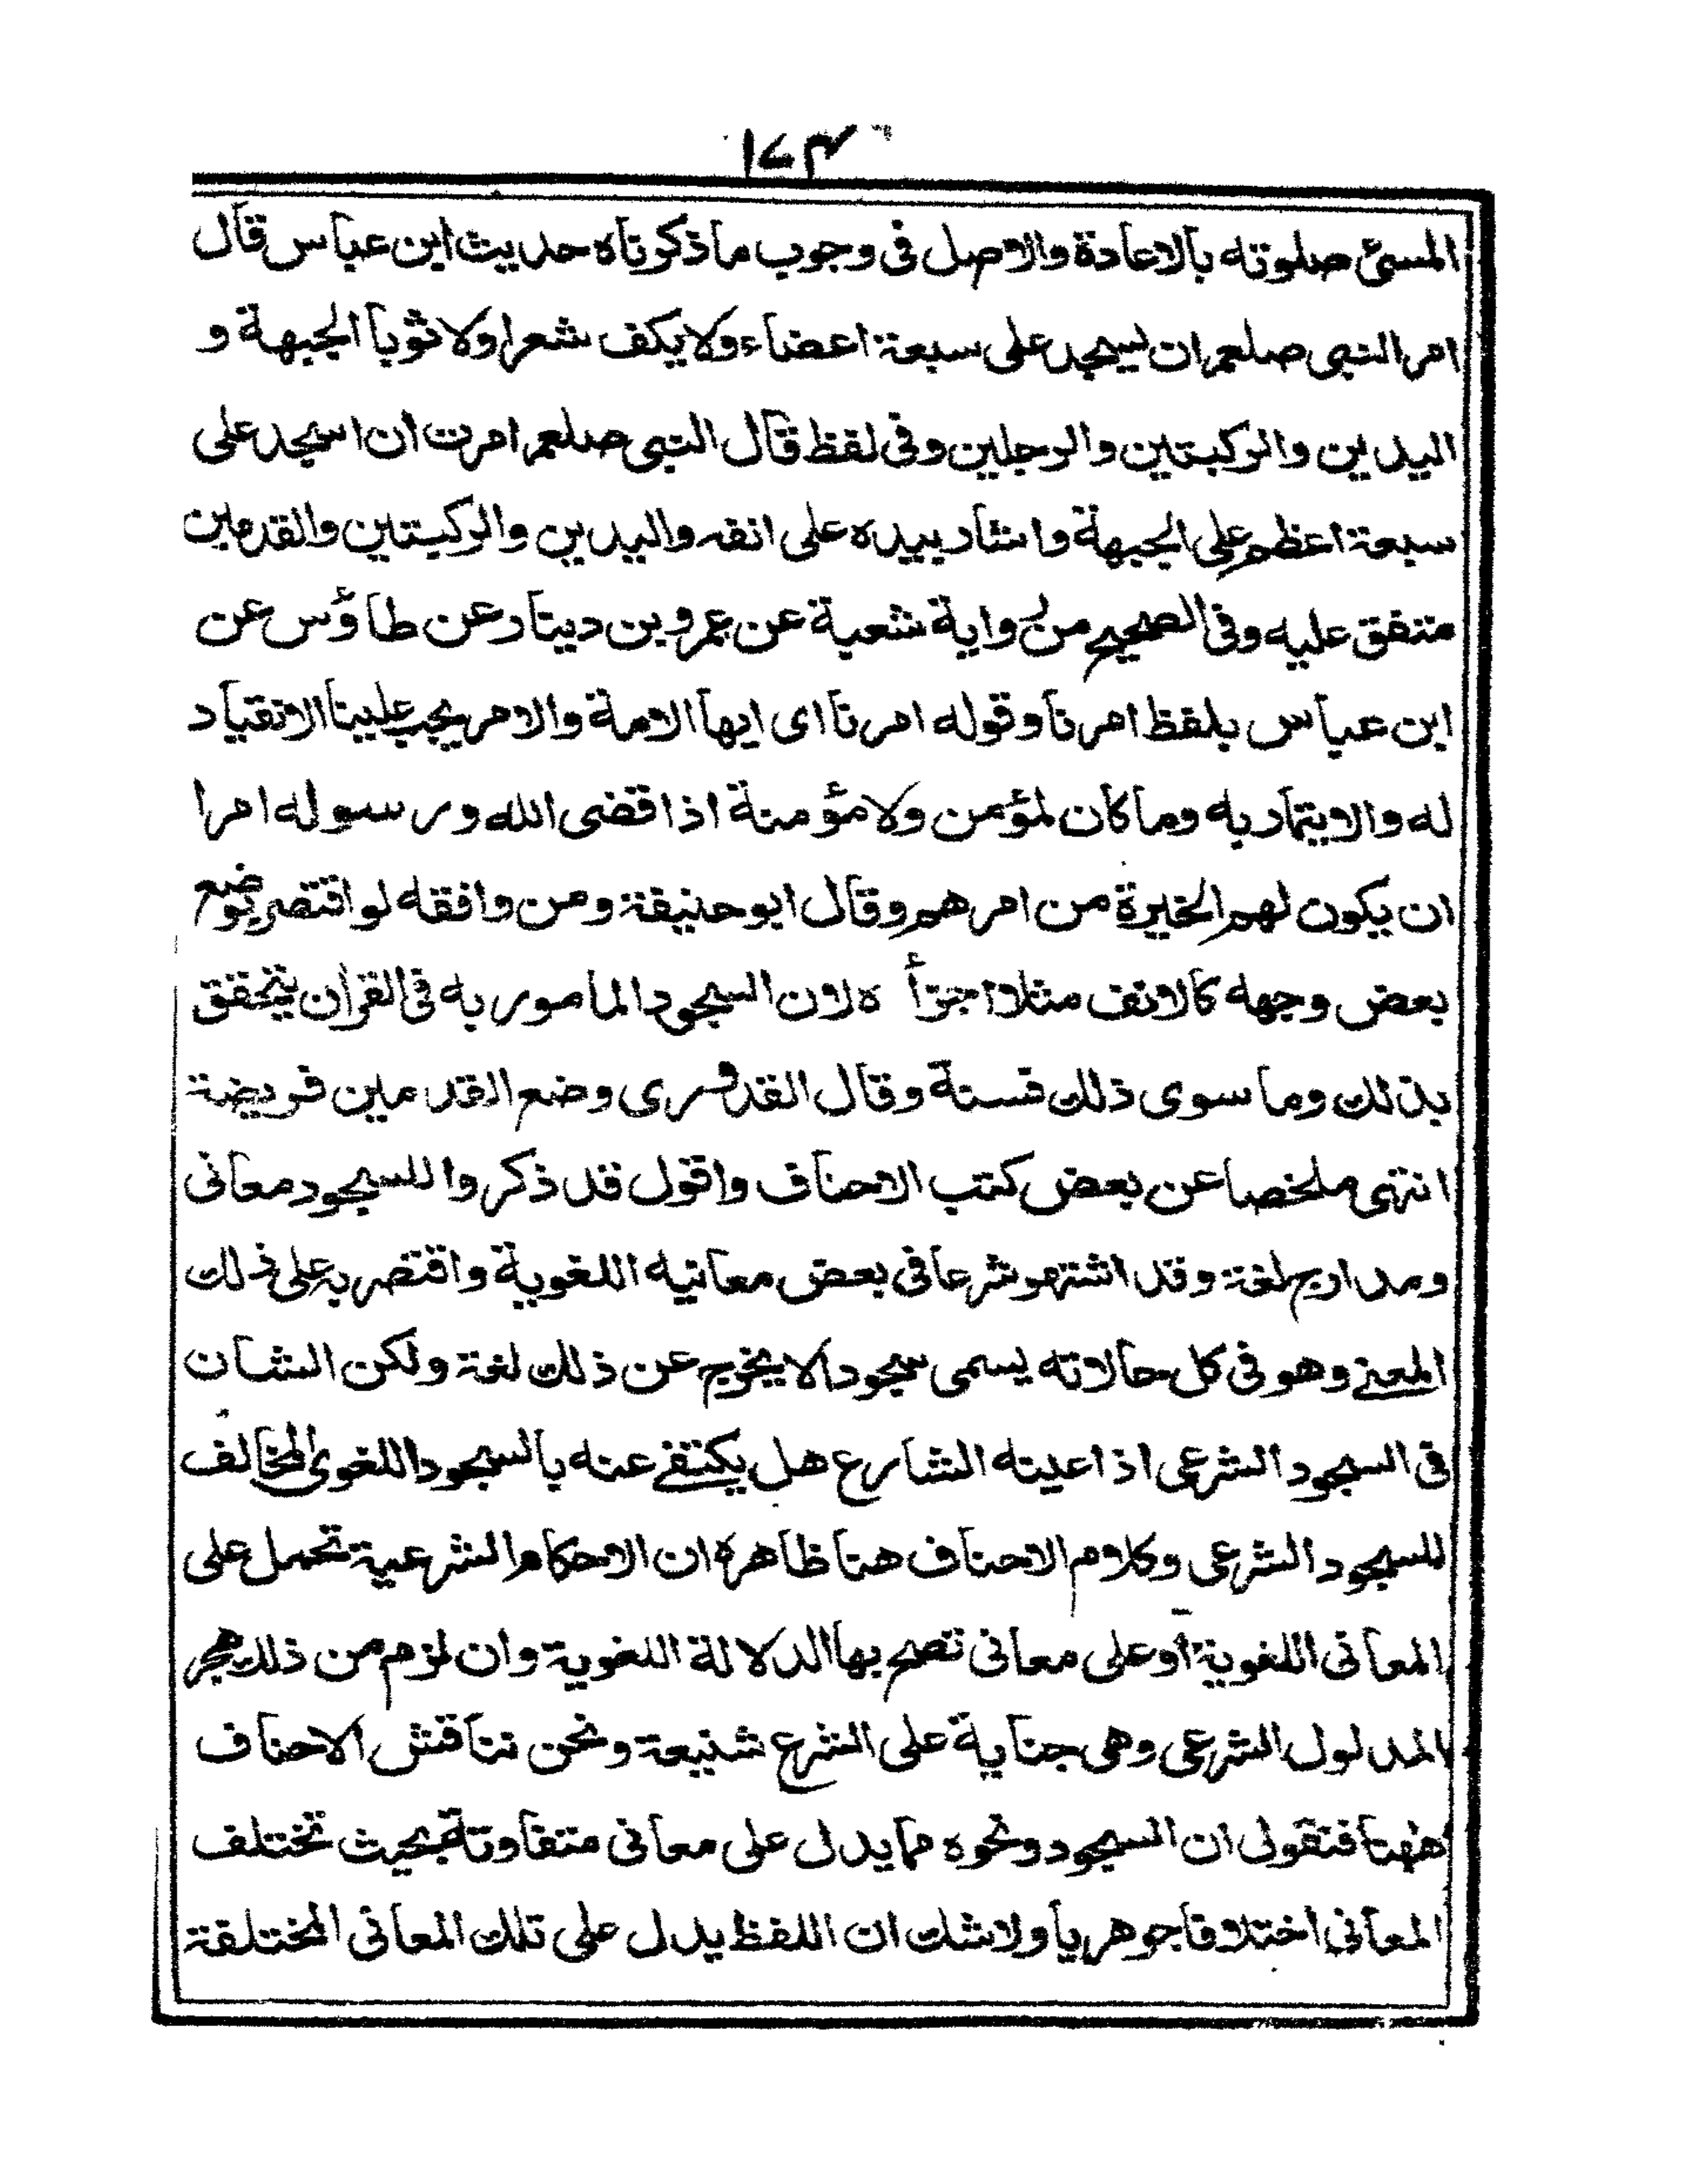 ١٧٤
المسئ صلوته بالاعادة والاصل فى وجوب ما ذكرناه حديث ابن عباس قال
امر النبى صلعم ان يسجد على سبعة اعضاء ولا يكف شعرا ولا ثوبا الجبهة و
اليدين والركبتين والرجلين وفى لفظ قال النبى صلعم امرت ان اسجد على
سبعة اعظم على الجبهة واشار بيده على انفه واليدين والركبتين والقدمين
متفق عليه وفى الصحيح من رواية شعبة عن عمرو بن دينار عن طاؤس عن
ابن عباس بلفظ امرنا وقوله امرنا اى ايها الامة والامر يجب علينا الانقياد
له والايتمار به وما كان لمؤمن ولا مؤمنة اذا قضى الله ورسوله امرا
ان يكون لهم الخيرة من امرهم وقال ابو حنيفة ومن وافقه لو اقتصر بوضع
بعض وجهه كالانف مثلا اجزأ ه لان السجود المامور به فى القرأن يتحقق
بذلك وما سوى ذلك فسنة وقال القدورى وضع القدمين فريضة
انتهى ملخصا عن بعض كتب الاحناف واقول قد ذكروا للسجود معانى
ومدارج لغة وقد اشتهر شرعا فى بعض معانيه اللغوية واقتصر به على ذلك
المعنے وهو فى كل حالاته يسمى سجودا لا يخرج عن ذلك لغة ولكن الشان
فى السجود الشرعى اذا عينه الشارع هل يكتفے عنه بالسجود اللغوى المخالف
للسجود الشرعى وكلام الاحناف هنا ظاهره ان الاحكام الشرعية تحمل على
المعانى اللغوية أو على معانى تصح بها الدلالة اللغوية وان لزم من ذلك هجر
المدلول الشرعى وهى جناية على الشرع شنيعة ونحن نناقش الاحناف
ههنا فنقول ان السجود ونحوه مما يدل على معانى متفاوتة بحيث تختلف
المعانى اختلافا جوهريا ولا شك ان اللفظ يدل على تلك المعانى المختلفة